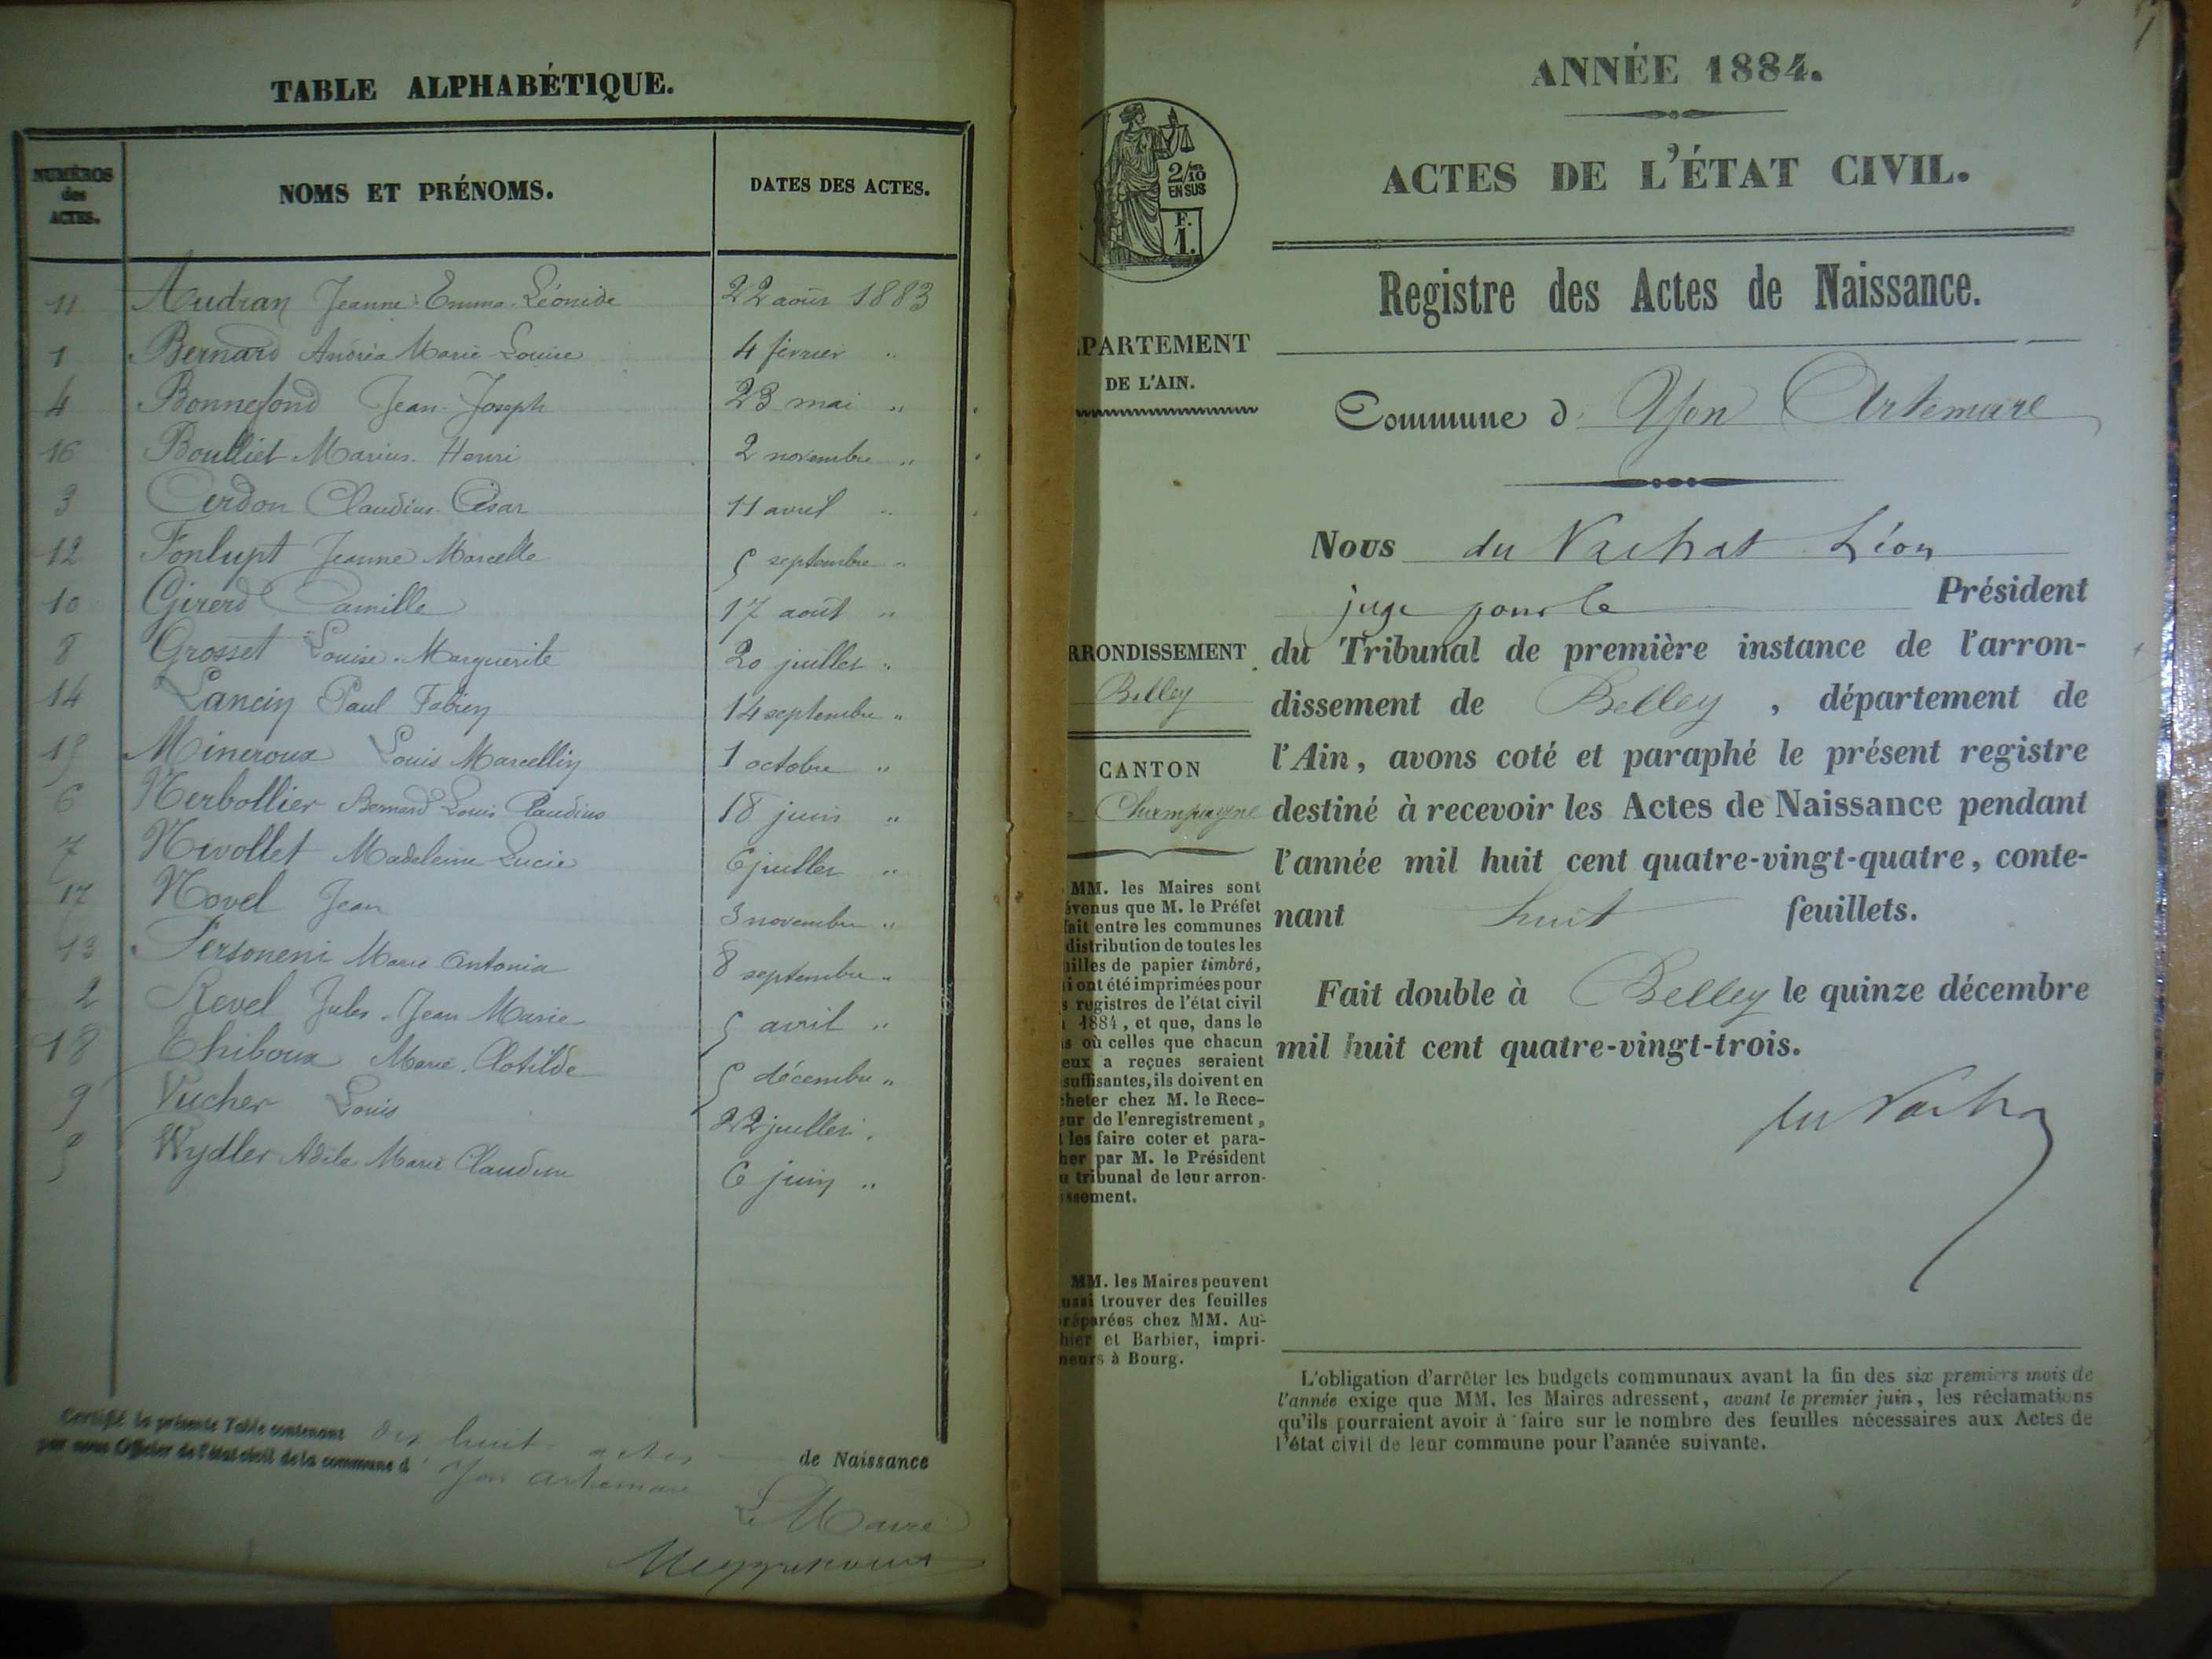 TABLE ALPHABÉTIQUE.
NUMÉROS des ACTES.
NOMS ET PRÉNOMS.
DATES DES ACTES.
11 Audran Jeanne Emma Léonide 22 août 1883
1 Bernard Andréa Marie Louise 4 février "
4 Bonnefond Jean-Joseph 23 mai "
16 Boulliet Marius Henri 2 novembre "
3 Cerdon Claudius César 11 avril "
12 Fonlupt Jeanne Marcelle 5 septembre "
10 Girerd Camille 17 août "
8 Grosset Louise Marguerite 20 juillet "
14 Lancin Paul Fabien 14 septembre "
15 Mineroux Louis Marcellin 1 octobre "
6 Nerbollier Bernard Louis Claudius 18 juin "
7 Nivollet Madeleine Lucie 6 juillet "
17 Novel Jean 3 novembre "
13 Personeni Marie Antonia 8 septembre "
2 Revel Jules Jean Marie 5 avril "
18 Thiboux Marie Clotilde 5 décembre "
9 Vucher Louis 22 juillet "
5 Wydler Adèle Marie Claudine 6 juin "
Certifié la présente Table contenant dix huit actes de Naissance
par nous Officier de l'état civil de la commune d' Yon Artemare
Le Maire
ANNÉE 1884.
ACTES DE L'ÉTAT CIVIL.
2/10 EN SUS
F. 1.
Registre des Actes de Naissance.
PARTEMENT
DE L'AIN.
Commune d' Yon Artemare
Nous du Vachat Léon
juge pour le Président
RRONDISSEMENT
Belley
CANTON
Champagne
du Tribunal de première instance de l'arron-
dissement de Belley, département de
l'Ain, avons coté et paraphé le présent registre
destiné à recevoir les Actes de Naissance pendant
l'année mil huit cent quatre-vingt-quatre, conte-
nant huit feuillets.
Fait double à Belley le quinze décembre
mil huit cent quatre-vingt-trois.
du Vachat
MM. les Maires sont
évenus que M. le Préfet
fait entre les communes
distribution de toutes les
uilles de papier timbré,
i ont été imprimées pour
s registres de l'état civil
1884, et que, dans le
s où celles que chacun
eux a reçues seraient
suffisantes, ils doivent en
cheter chez M. le Rece-
eur de l'enregistrement,
t les faire coter et para-
her par M. le Président
u tribunal de leur arron-
issement.
MM. les Maires peuvent
ussi trouver des feuilles
réparées chez MM. Au-
hier et Barbier, impri-
neurs à Bourg.
L'obligation d'arrêter les budgets communaux avant la fin des six premiers mois de
l'année exige que MM. les Maires adressent, avant le premier juin, les réclamations
qu'ils pourraient avoir à faire sur le nombre des feuilles nécessaires aux Actes de
l'état civil de leur commune pour l'année suivante.